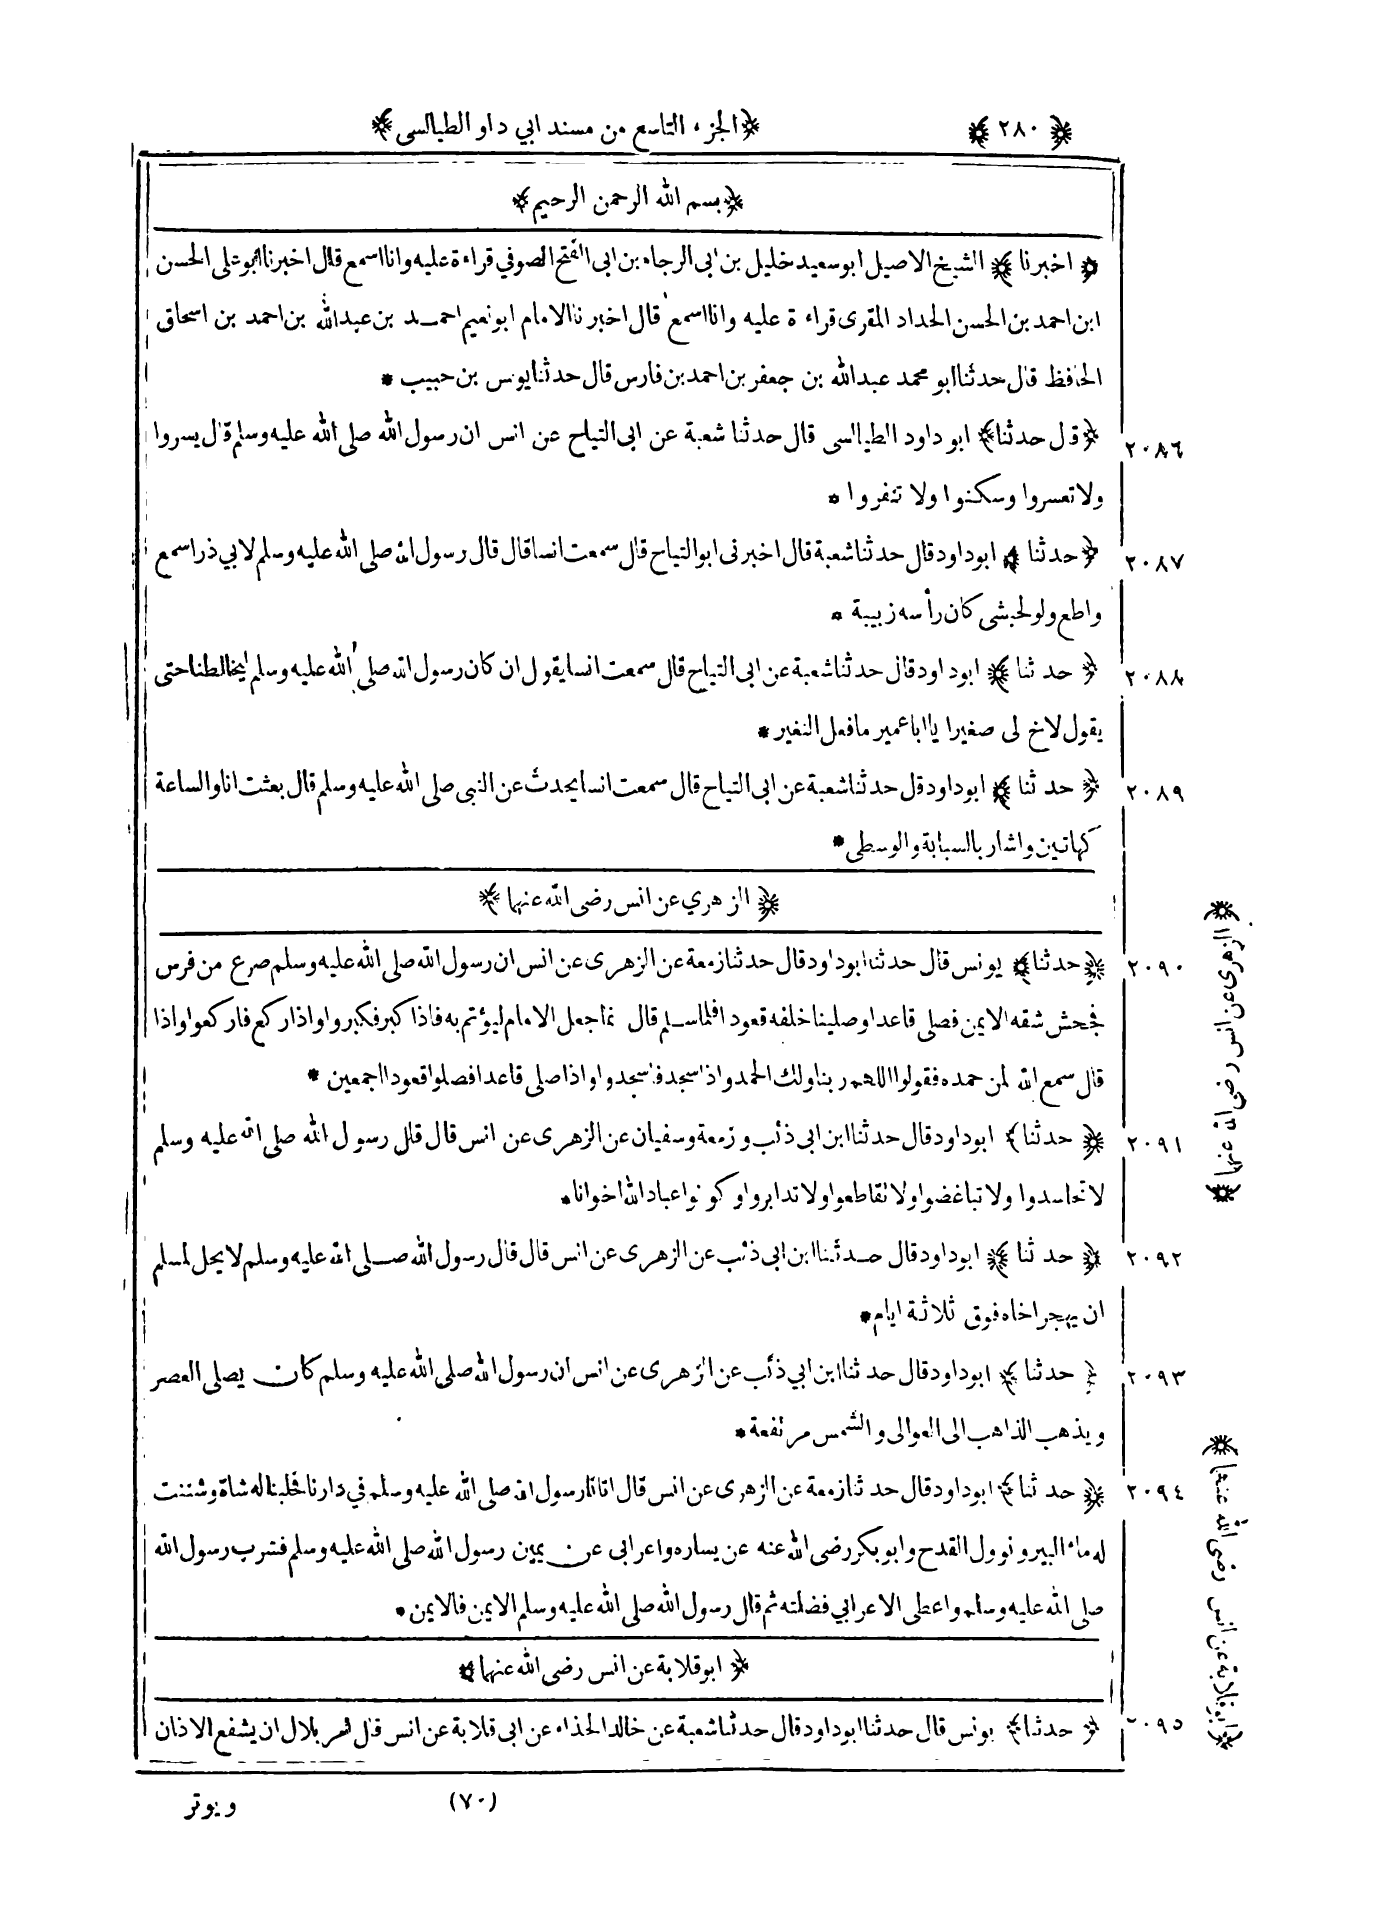 ﴿٢٨٠﴾ ﴿الجزء التاسع من مسند ابي داو الطيالسى﴾
﴿بسم الله الرحمن الرحيم﴾
﴿اخبرنا﴾ الشيخ الاصيل ابو سعيد خليل بن ابى الرجاء بن ابى الفتح الصوفي قراءة عليه وانا اسمع قال اخبرنا ابو على الحسن
ابن احمد بن الحسن الحداد المقرى قراءة عليه وانا اسمع قال اخبرنا الامام ابو نعيم احمد بن عبد الله بن احمد بن اسحاق
الحافظ قال حدثنا ابو محمد عبد الله بن جعفر بن احمد بن فارس قال حدثنا يونس بن حبيب *
٢٠٨٦ ﴿قال حدثنا﴾ ابو داود الطيالسى قال حدثنا شعبة عن ابى التياح عن انس ان رسول الله صلى الله عليه وسلم قال يسروا
ولا تعسروا وسكنوا ولا تنفروا *
٢٠٨٧ ﴿حدثنا﴾ ابو داود قال حدثنا شعبة قال اخبرنى ابو التياح قال سمعت انسا قال قال رسول الله صلى الله عليه وسلم لابي ذر اسمع
واطع ولو لحبشى كان رأسه زبيبة *
٢٠٨٨ ﴿حدثنا﴾ ابو داود قال حدثنا شعبة عن ابى التياح قال سمعت انسا يقول ان كان رسول الله صلى الله عليه وسلم ليخالطنا حتى
يقول لاخ لى صغيرا يا ابا عمير ما فعل النغير *
٢٠٨٩ ﴿حدثنا﴾ ابو داود قل حدثنا شعبة عن ابى التياح قال سمعت انسا يحدث عن النبى صلى الله عليه وسلم قال بعثت انا والساعة
كهاتين واشار بالسبابة والوسطى *
﴿الزهري عن انس رضى الله عنهما﴾
٢٠٩٠ ﴿حدثنا﴾ يونس قال حدثنا ابو داود قال حدثنا زمعة عن الزهرى عن انس ان رسول الله صلى الله عليه وسلم صرع من فرس
فجحش شقه الايمن فصلى قاعدا وصلينا خلفه قعودا فلما سلم قال نما جعل الامام ليؤتم به فاذا كبر فكبروا واذا ركع فاركعوا واذا
قال سمع الله لمن حمده فقولوا اللهم ربنا ولك الحمد واذا سجد فاسجدوا واذا صلى قاعدا فصلوا قعودا اجمعين *
٢٠٩١ ﴿حدثنا﴾ ابو داود قال حدثنا ابن ابى ذئب وزمعة وسفيان عن الزهرى عن انس قال قال رسول الله صلى الله عليه وسلم
لا تحاسدوا ولا تباغضوا ولا تقاطعوا ولا تدابروا وكونوا عباد الله اخوانا *
٢٠٩٢ ﴿حدثنا﴾ ابو داود قال حدثنا ابن ابى ذئب عن الزهرى عن انس قال قال رسول الله صلى الله عليه وسلم لا يحل لمسلم
ان يهجر اخاه فوق ثلاثة ايام *
٢٠٩٣ ﴿حدثنا﴾ ابو داود قال حدثنا ابن ابي ذئب عن الزهرى عن انس ان رسول الله صلى الله عليه وسلم كان يصلى العصر
ويذهب الذاهب الى العوالى والشمس مرتفعة *
٢٠٩٤ ﴿حدثنا﴾ ابو داود قال حدثنا زمعة عن الزهرى عن انس قال اتانا رسول الله صلى الله عليه وسلم في دارنا فحلبنا له شاة وشننت
له ماء البير ونوول القدح وابو بكر رضى الله عنه عن يساره واعرابى عن يمين رسول الله صلى الله عليه وسلم فشرب رسول الله
صلى الله عليه وسلم واعطى الاعرابي فضلته ثم قال رسول الله صلى الله عليه وسلم الايمن فالايمن *
﴿ابو قلابة عن انس رضى الله عنهما﴾
٢٠٩٥ ﴿حدثنا﴾ يونس قال حدثنا ابو داود قال حدثنا شعبة عن خالد الحذاء عن ابى قلابة عن انس قال امر بلال ان يشفع الاذان
(٧٠) ويوتر
﴿الزهرى عن انس رضى الله عنهما﴾
﴿ابو قلابة عن انس رضى الله عنهما﴾